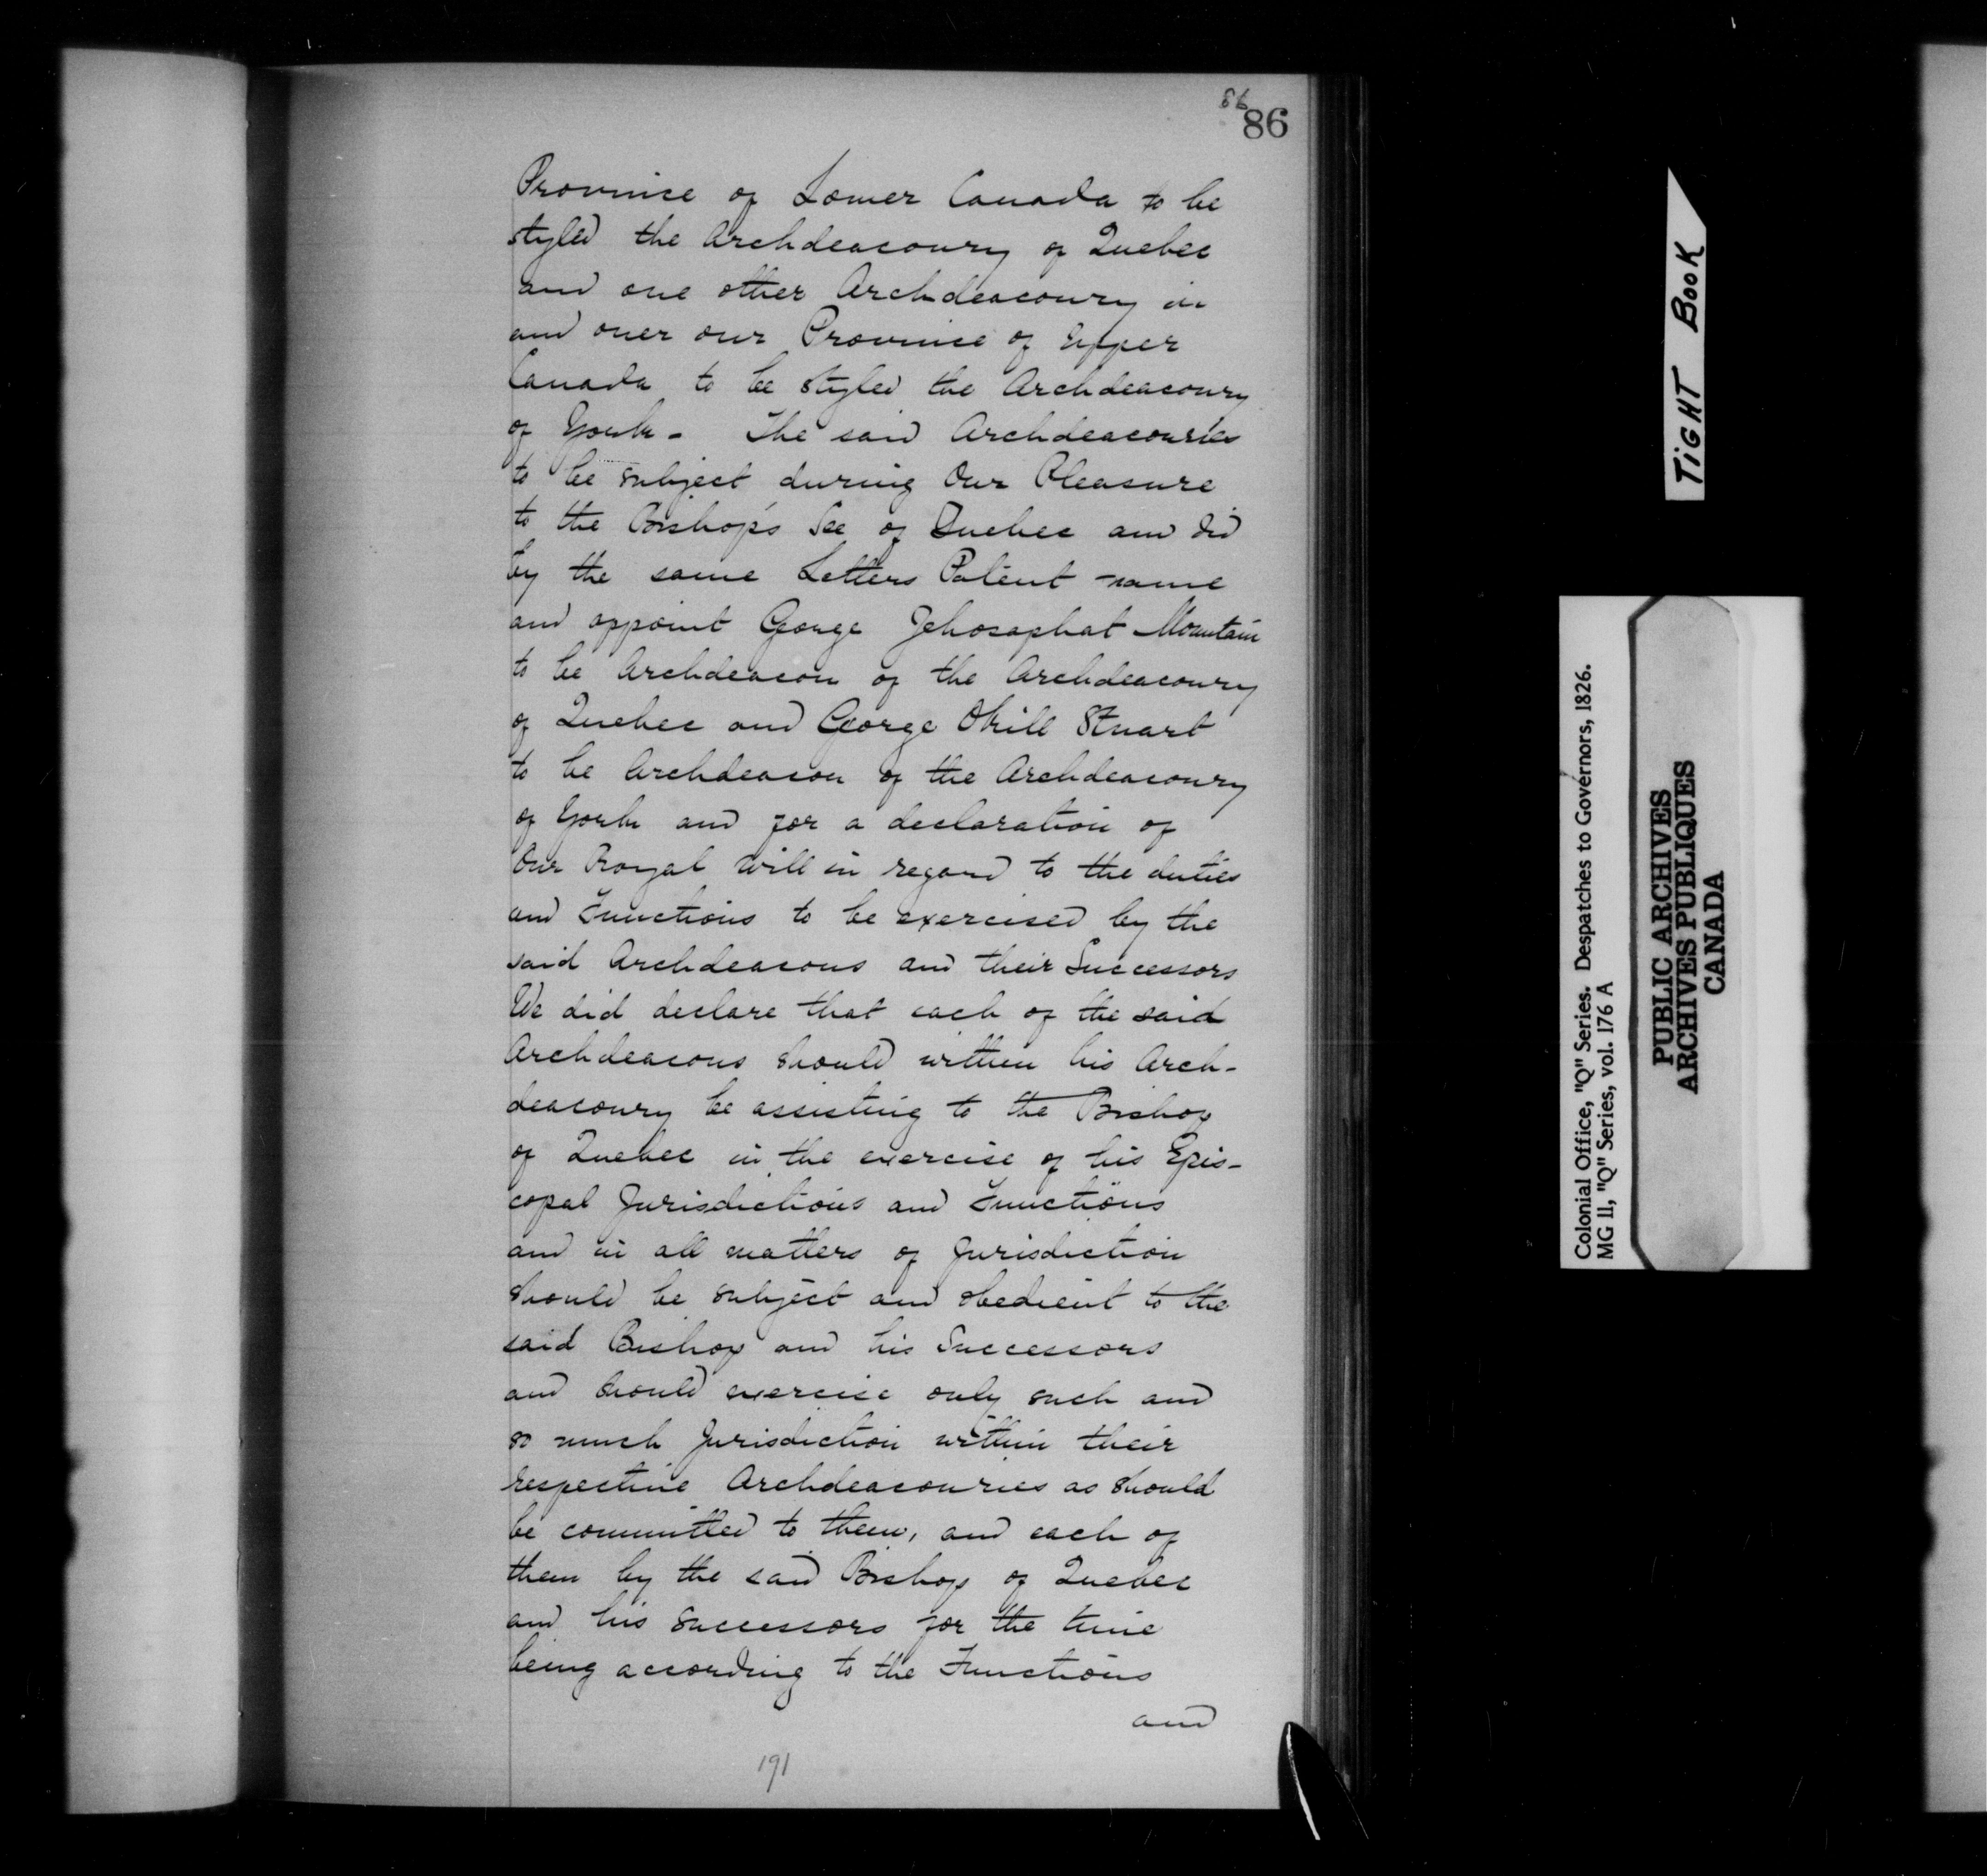 86
86
Province of Lower Canada to be
styled the Archdeaconry of Quebec
and one other Archdeaconry in
and over our Province of Upper
Canada to be styled the Archdeaconry
of York - The said Archdeaconries
to be subject during Our Pleasure
to the Bishop's See of Quebec and did
by the same Letters Patent name
and appoint George Jehosaphat Mountain
to be Archdeacon of the Archdeaconry
of Quebec and George Okill Stuart
to be Archdeacon of the Archdeaconry
of York and for a declaration of
Our Royal Will in regard to the duties
and Functions to be exercised by the
said Archdeacons and their Successors
We did declare that each of the said
Archdeacons should within his Arch-
deaconry be assisting to the Bishop
of Quebec in the exercise of his Epis-
copal Jurisdictions and Functions
and in all matters of Jurisdiction
should be subject and obedient to the
said Bishop and his Successors
and should exercise only such and
so much Jurisdiction within their
respective Archdeaconries as should
be committed to them, and each of
them by the said Bishop of Quebec
and his successors for the time
being according to the Functions
and
191
TIGHT BOOK
Colonial Office, "Q" Series. Despatches to Governors, 1826.
MG 11, "Q" Series, vol. 176 A
PUBLIC ARCHIVES
ARCHIVES PUBLIQUES
CANADA